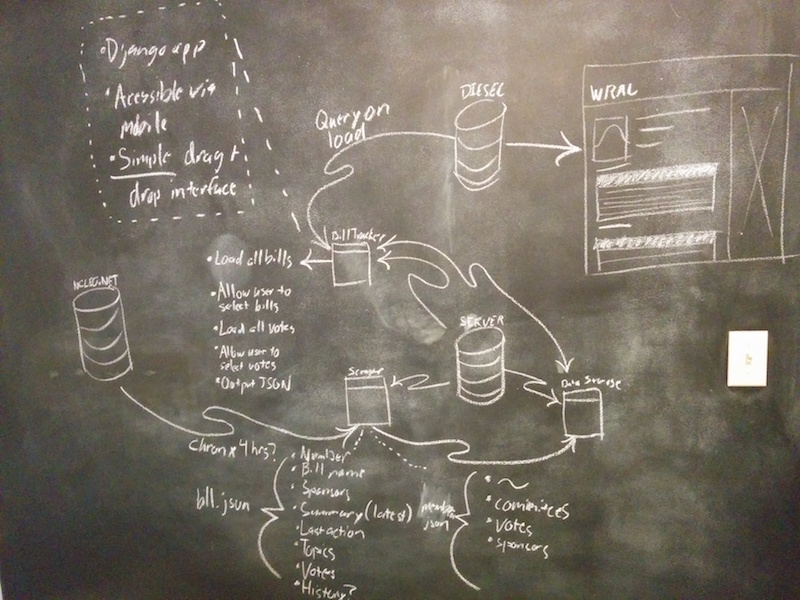 • Django app
• Acessible via
mobile
• Simple drag +
drop interface
Query on
load
DIESEL
WRAL
BillTracker
• Load all bills
• Allow user to
select bills
• Load all votes
• Allow user to
select votes
• Output JSON
NCLEG.NET
SERVER
Scraper
Data Storage
chron x 4 hrs?
bill.json
• Number
• Bill name
• Sponsors
• Summary (latest)
• Last action
• Topics
• Votes
• History?
member
.json
• ~
• committees
• votes
• sponsors